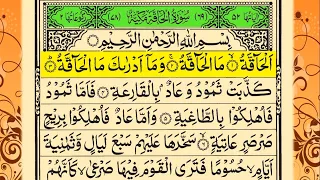 اٰيَاتُهَا ٥٢ (٦٩) سُوْرَةُ الْحَآقَّةِ مَكِّيَّةٌ (٧٨) رُكُوْعَاتُهَا ٢
بِسْمِ اللّٰهِ الرَّحْمٰنِ الرَّحِيْمِ
اَلْحَآقَّةُ ۙ﴿١﴾ مَا الْحَآقَّةُ ۚ﴿٢﴾ وَمَاۤ اَدْرٰىكَ مَا الْحَآقَّةُ ؕ﴿٣﴾
كَذَّبَتْ ثَمُوْدُ وَ عَادٌۢ بِالْقَارِعَةِ ﴿٤﴾ فَاَمَّا ثَمُوْدُ
فَاُهْلِكُوْا بِالطَّاغِيَةِ ﴿٥﴾ وَ اَمَّا عَادٌ فَاُهْلِكُوْا بِرِيْحٍ
صَرْصَرٍ عَاتِيَةٍ ۙ﴿٦﴾ سَخَّرَهَا عَلَيْهِمْ سَبْعَ لَيَالٍ وَّ ثَمٰنِيَةَ
اَيَّامٍ ۙ حُسُوْمًا فَتَرَى الْقَوْمَ فِيْهَا صَرْعٰى ۙ كَاَنَّهُمْ